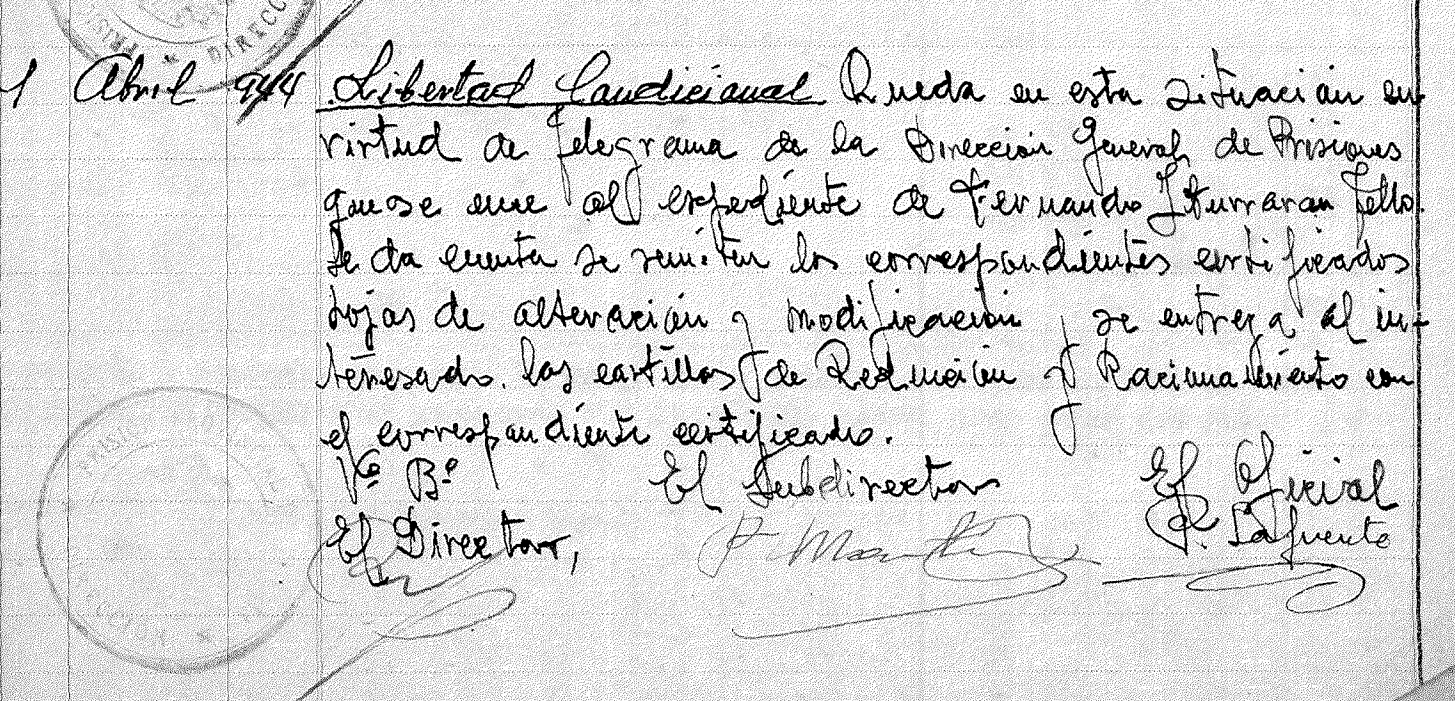 PRISI DIRECC
1 Abril 944 Libertad Condicional Queda en esta situación en
virtud de telegrama de la Dirección General de Prisiones
que se une al expediente de Fernando Iturraran Tello.
Se da cuenta se remiten los correspondientes certificados
hojas de alteración y modificación y se entrega al in-
teresado. las cartillas de Redención y Racionamiento con
el correspondiente certificado.
Vº Bº El Subdirector El Oficial
El Director, P. Lafuente